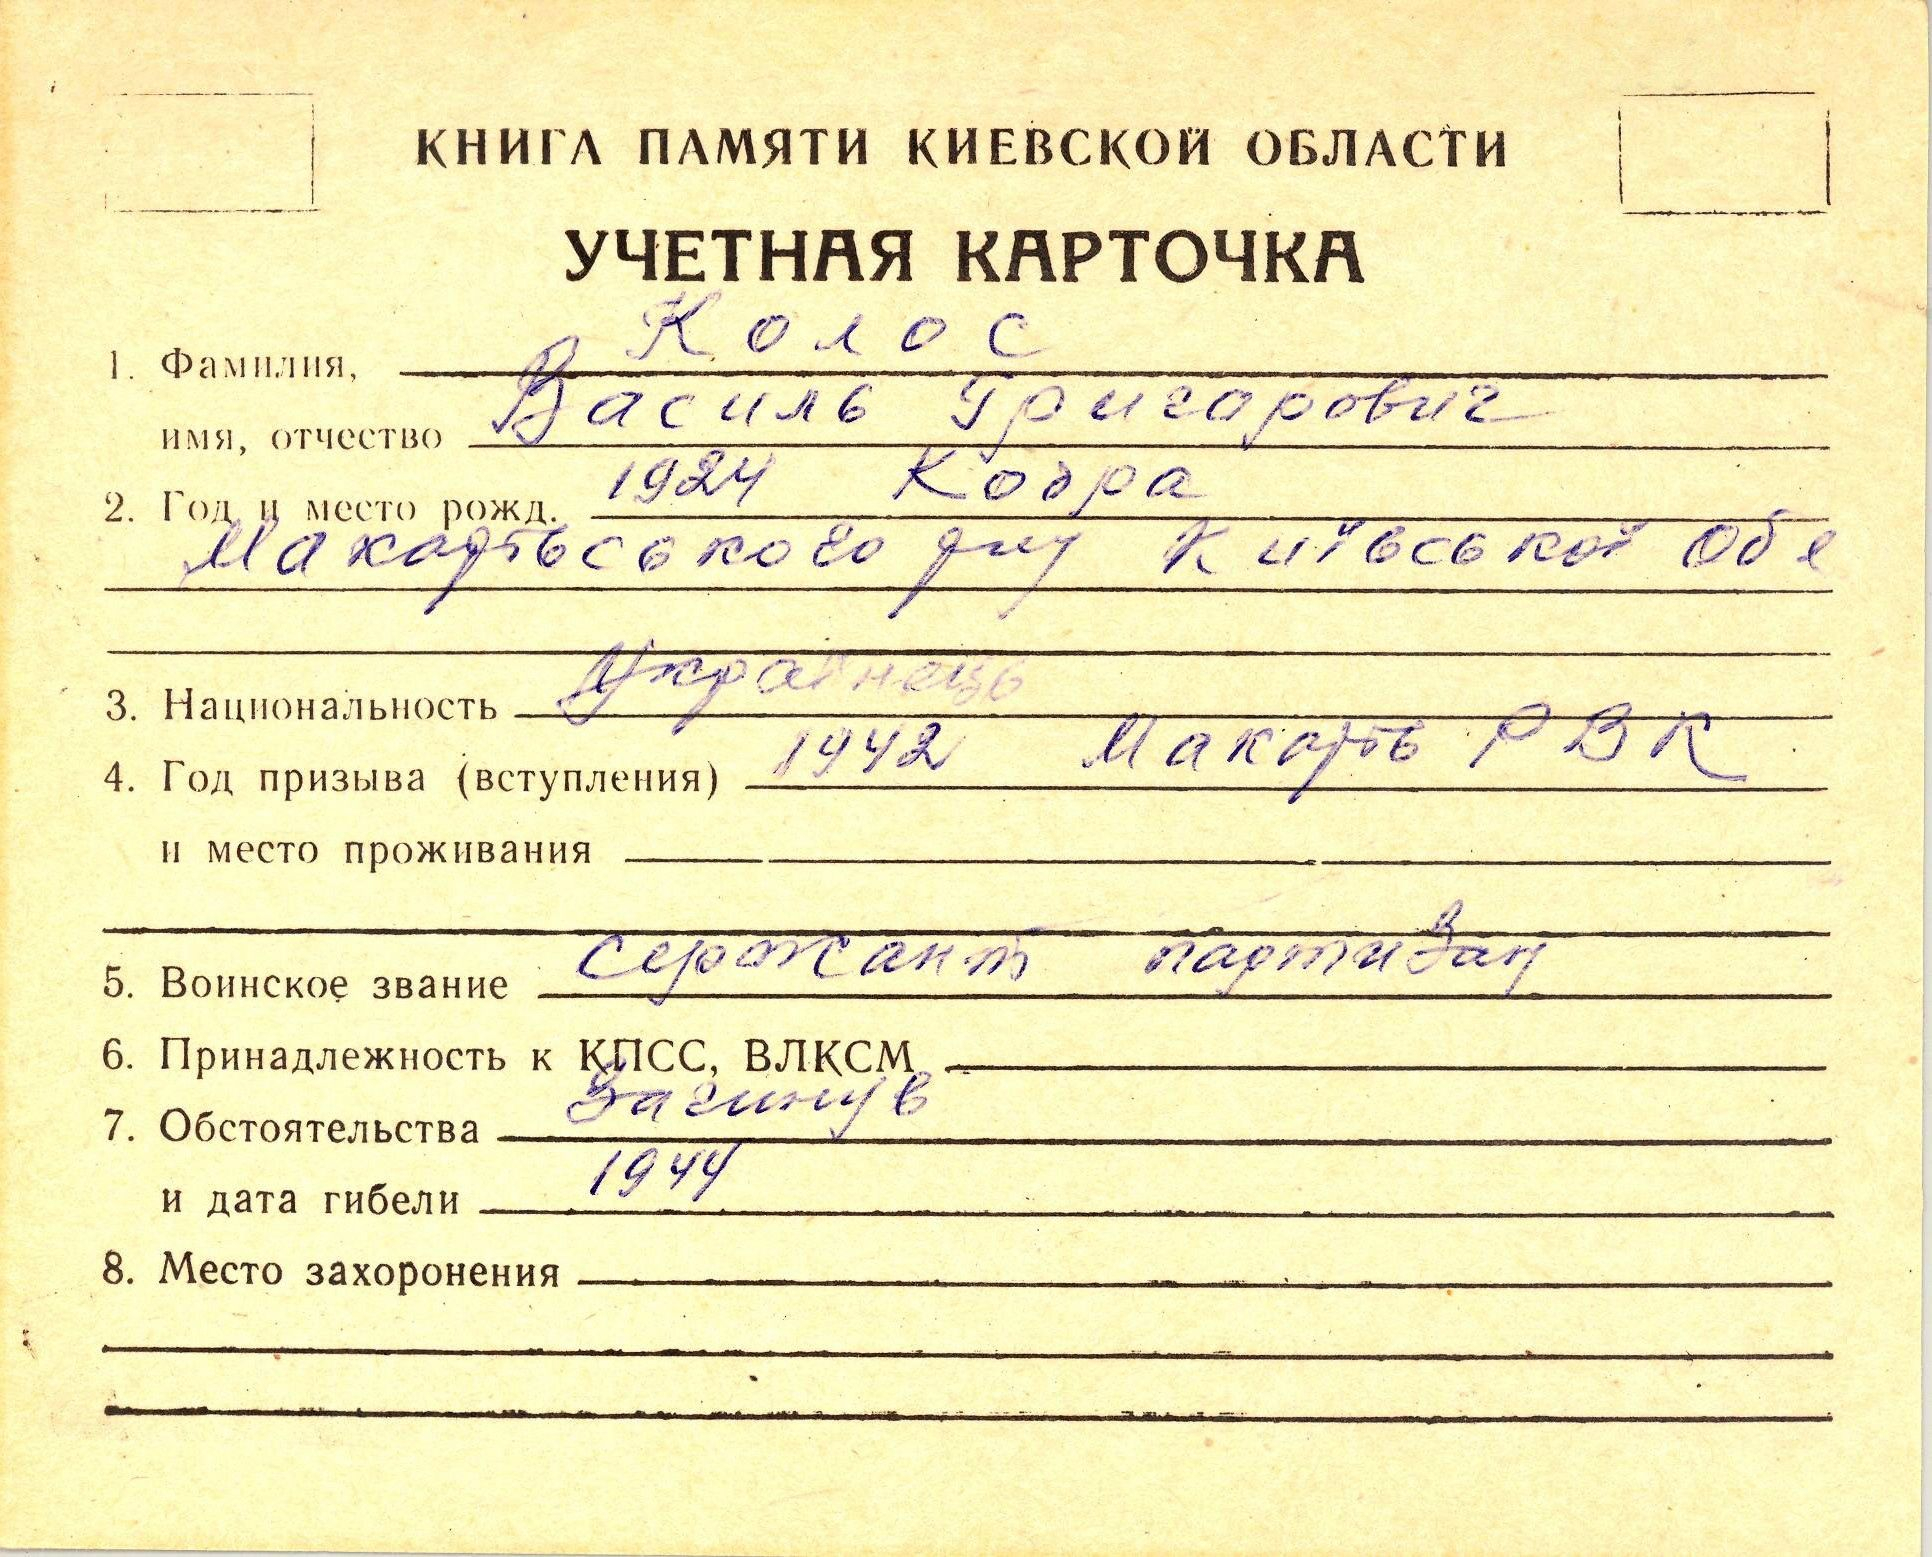 КНИГА ПАМЯТИ КИЕВСКОЙ ОБЛАСТИ
УЧЕТНАЯ КАРТОЧКА
1. Фамилия, Колос
имя, отчество Василь Григорович
2. Год и место рожд. 1924 Кодра
Макарівського р-ну Київської Обл
3. Национальность Українець
4. Год призыва (вступления) 1942 Макарів РВК
и место проживания
5. Воинское звание сержант партизан
6. Принадлежность к КПСС, ВЛКСМ
7. Обстоятельства Загинув
и дата гибели 1944
8. Место захоронения